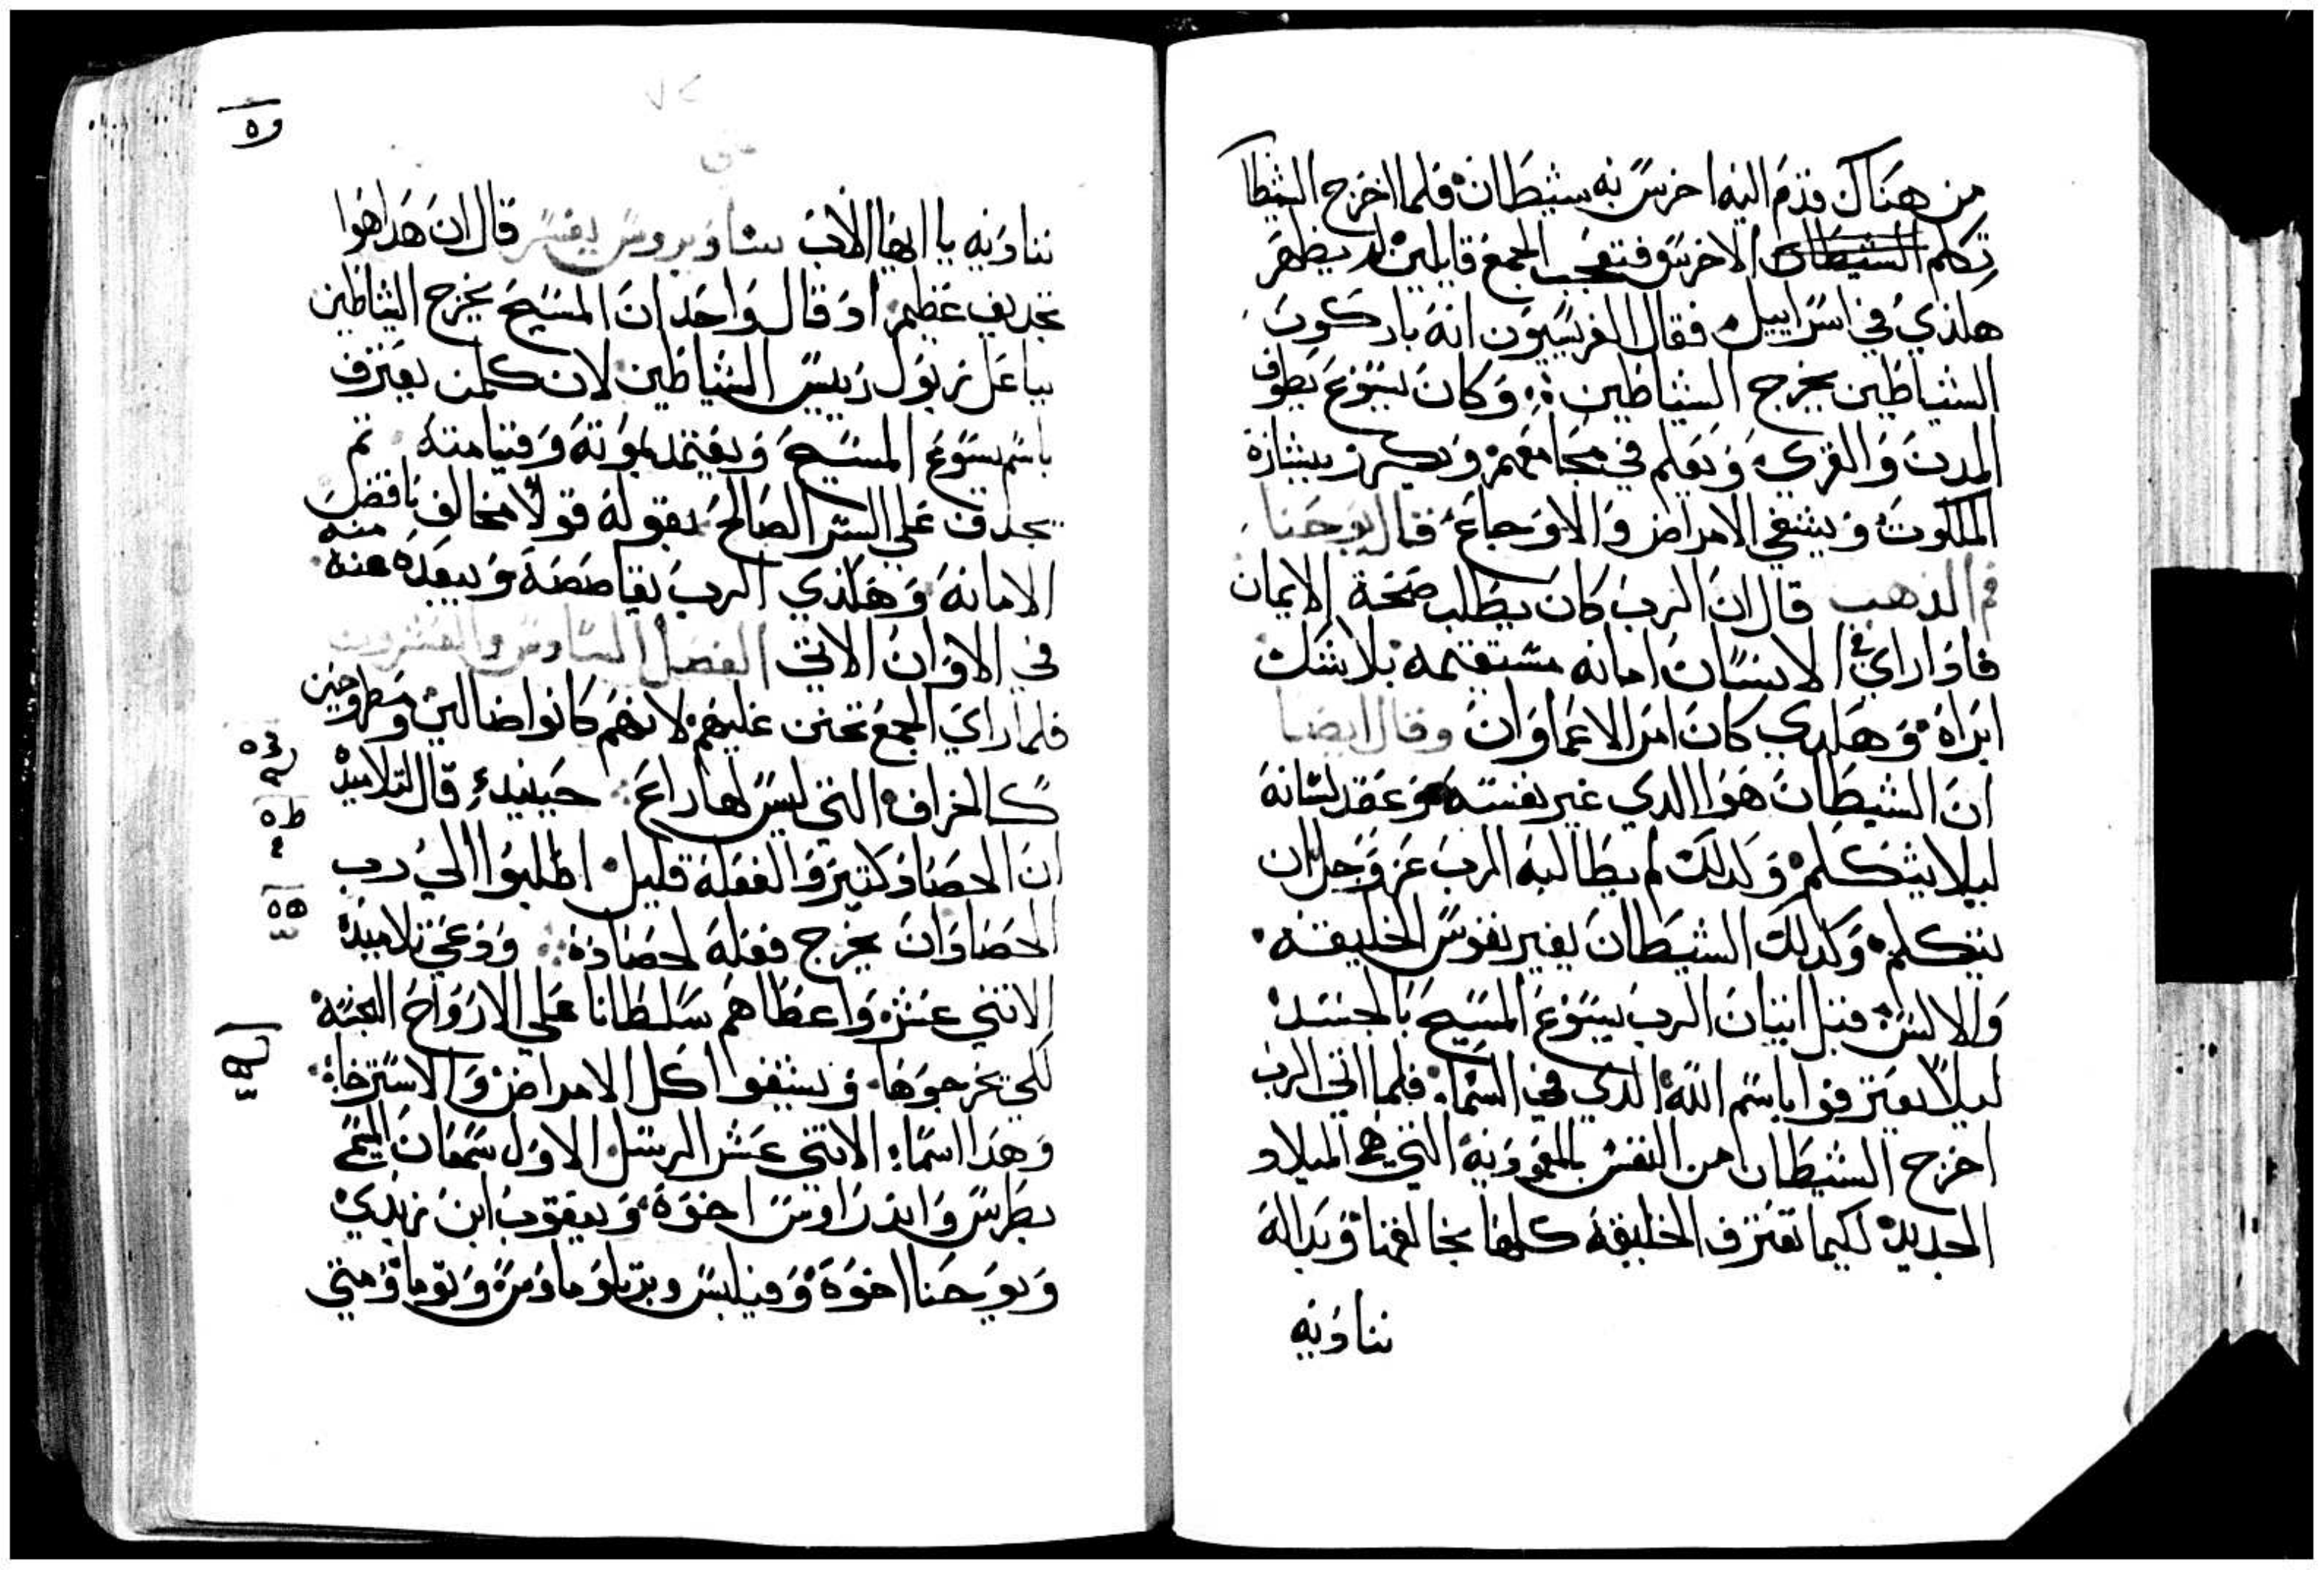 من هناك قدم اليه اخرس به شيطان فلما اخرج الشيطا
تكلم الشيطان الاخرس فتعجب الجمع قايلين لم يظهر
هلذي في اسراييل فقال الفريسيون انه باركون
الشياطين يخرج الشياطين وكان يسوع يطوف
المدن والقرى ويعلم في مجامعهم ويكرز ببشارة
الملكوت ويشفي الامراض والاوجاع قال يوحنا
فم الذهب قال ان الرب كان يطلب صحة الايمان
فادا راي في الانسان امانه مستقيمه بلا شك
ابراه وهلدي كان امر الاعما وان وقال ايضا
ان الشيطان هوا الدي غير نفسه وعقد لسانه
ليلا يتكلم وكدلك لم يطالبه الرب عز وجل ان
يتكلم وكدلك الشيطان يغير نفوس الخليقه
والالسن قبل اتيان الرب يسوع المسيح بالجسد
ليلا يعترفوا باسم الله الدي في السما فلما اتي الرب
اخرج الشيطان من النفس بالمعموديه التي هي الميلاد
الجديد لكيما تعترف الخليقه كلها بخالقها وبداله
نناديه
وه
نناديه يا ايها الاب ساويروس يفسر قال ان هدا هوا
تجديف عظيم او قال واحد ان المسيح يخرج الشاطين
بباعل زبول رييس الشياطين لان كلمن يعترف
باسم يسوع المسيح ويعتمد لموته وقيامته تم
يجدف علي السر الصالح بقوله قولا مخالف ناقض
الامانه وهلذي الرب يقاصصه ويبعده عنه منه
في الاوان الاتي الفصل السادس والعشرون
فلما راي الجمع تحنن عليهم لانهم كانوا ضالين ومطروحين
كالخراف التي ليس لها راع حينيدء قال لتلاميد
ان الحصاد كتير والفعله قليل اطلبوا الي رب
الحصاد ان يخرج فعله لحصاده ودعي تلاميده
الاتني عشر واعطاهم سلطانا علي الارواح النجسه
لكي يخرجوها ويشفوا كل الامراض والاسترخاء
وهدا اسماء الاتني عشر الرسل الاول سمعان المسمي
بطرس واندراوس اخوه ويعقوب ابن زبدي
ويوحنا اخوه وفيلبس وبرتلوماوس وتوما ومتي